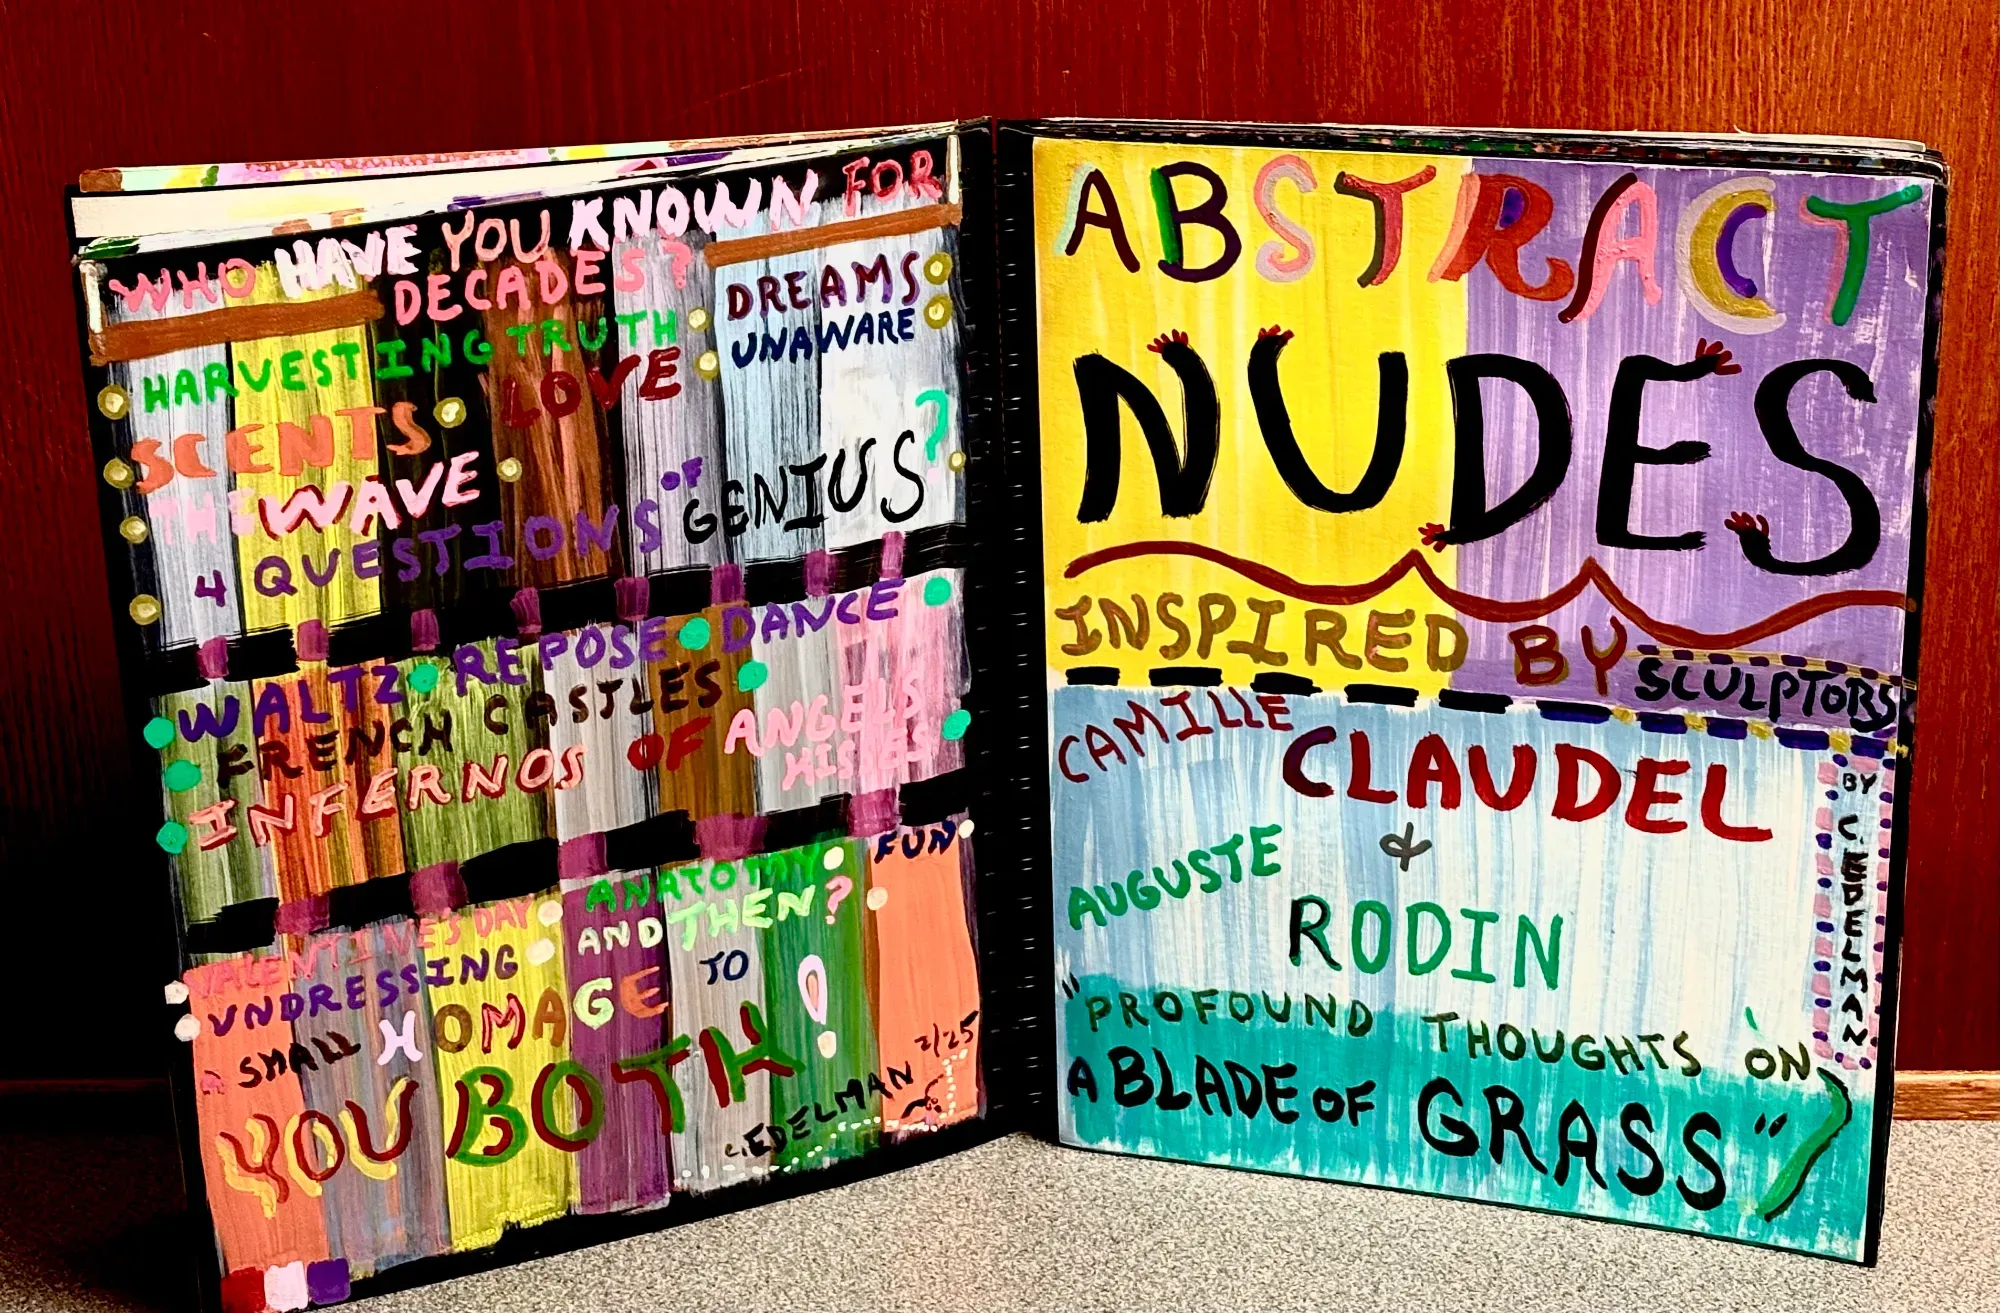 WHO HAVE YOU KNOWN FOR
DECADES?
HARVESTING TRUTH
DREAMS
UNAWARE
SCENTS LOVE
THE WAVE
4 QUESTIONS OF GENIUS?
WALTZ REPOSE DANCE
FRENCH CASTLES
INFERNOS OF ANGELS
VALENTINE'S DAY ANATOMY FUN
UNDRESSING AND THEN?
A SMALL HOMAGE TO
YOU BOTH!
C. EDELMAN 2/25
ABSTRACT
NUDES
INSPIRED BY SCULPTORS
CAMILLE CLAUDEL
&
AUGUSTE
RODIN
"PROFOUND THOUGHTS ON
A BLADE OF GRASS"
BY C. EDELMAN